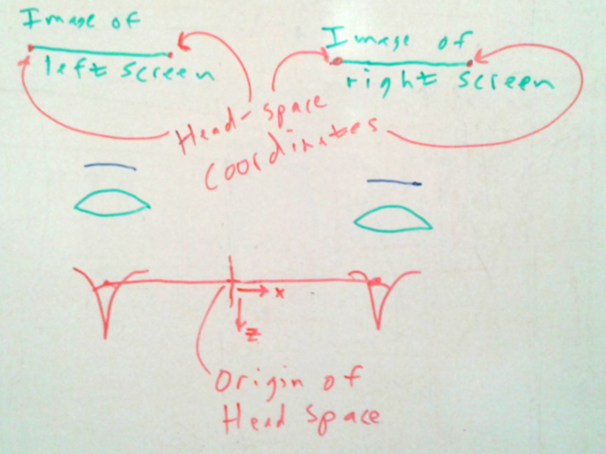 Image of
left screen
Image of
right screen
Head-space
coordinates
x
z
Origin of
Head Space